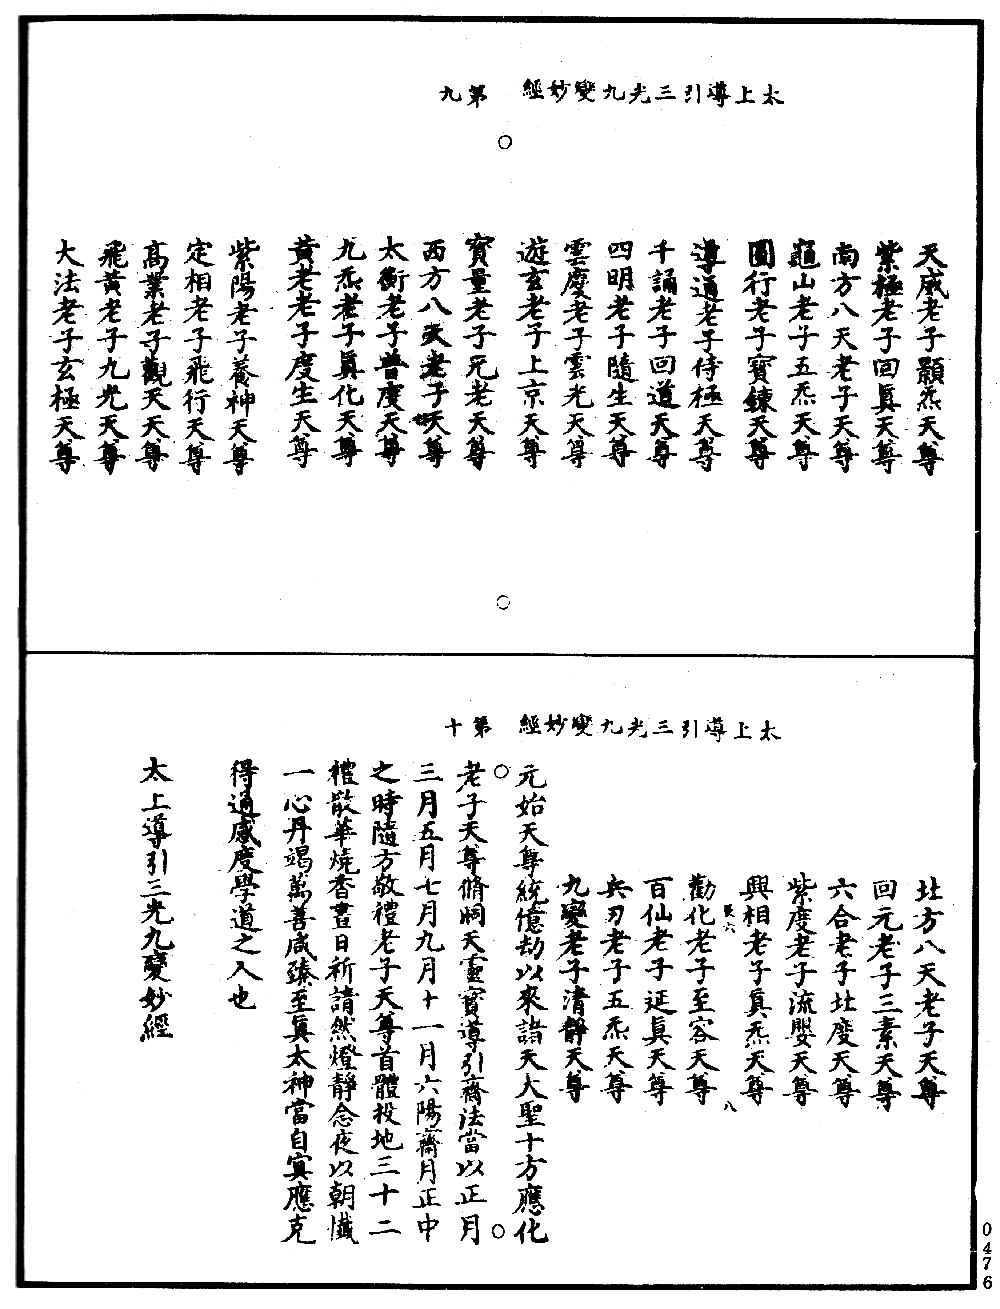 太上導引三光九變妙經　第九
天威老子顥炁天尊
紫極老子回眞天尊
南方八天老子天尊
龜山老子五炁天尊
圓行老子寶鍊天尊
導通老子待極天尊
千誦老子回道天尊
四明老子隨生天尊
雲度老子雲光天尊
遊玄老子上京天尊
寶量老子元老天尊
西方八天老子天尊
太衡老子普度天尊
九炁老子眞化天尊
黃老老子度生天尊
紫陽老子養神天尊
定相老子飛行天尊
高業老子觀天天尊
飛黃老子九光天尊
大法老子玄極天尊
太上導引三光九變妙經　第十
北方八天老子天尊
回元老子三素天尊
六合老子北度天尊
紫度老子流嬰天尊
興相老子眞炁天尊
八
勸化老子至容天尊
百仙老子延眞天尊
兵刃老子五炁天尊
九變老子清靜天尊
元始天尊統億劫以來諸天大聖十方應化
老子天尊脩祠天靈寶導引齋法當以正月
三月五月七月九月十一月六陽齋月正中
之時隨方敬禮老子天尊首體投地三十二
禮散華燒香晝日祈請然燈靜念夜以朝懺
一心丹竭萬善咸臻至眞太神當自寘應克
得通感度學道之人也
太上導引三光九變妙經
0476